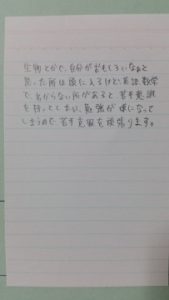 生物とかで、自分がおもしろいなぁと
思った所は覚たえるけど、英語、数学
で、わからない所があると苦手意識
を持ってしまい、勉強が嫌になって
しまうので、苦手克服を頑張ります。